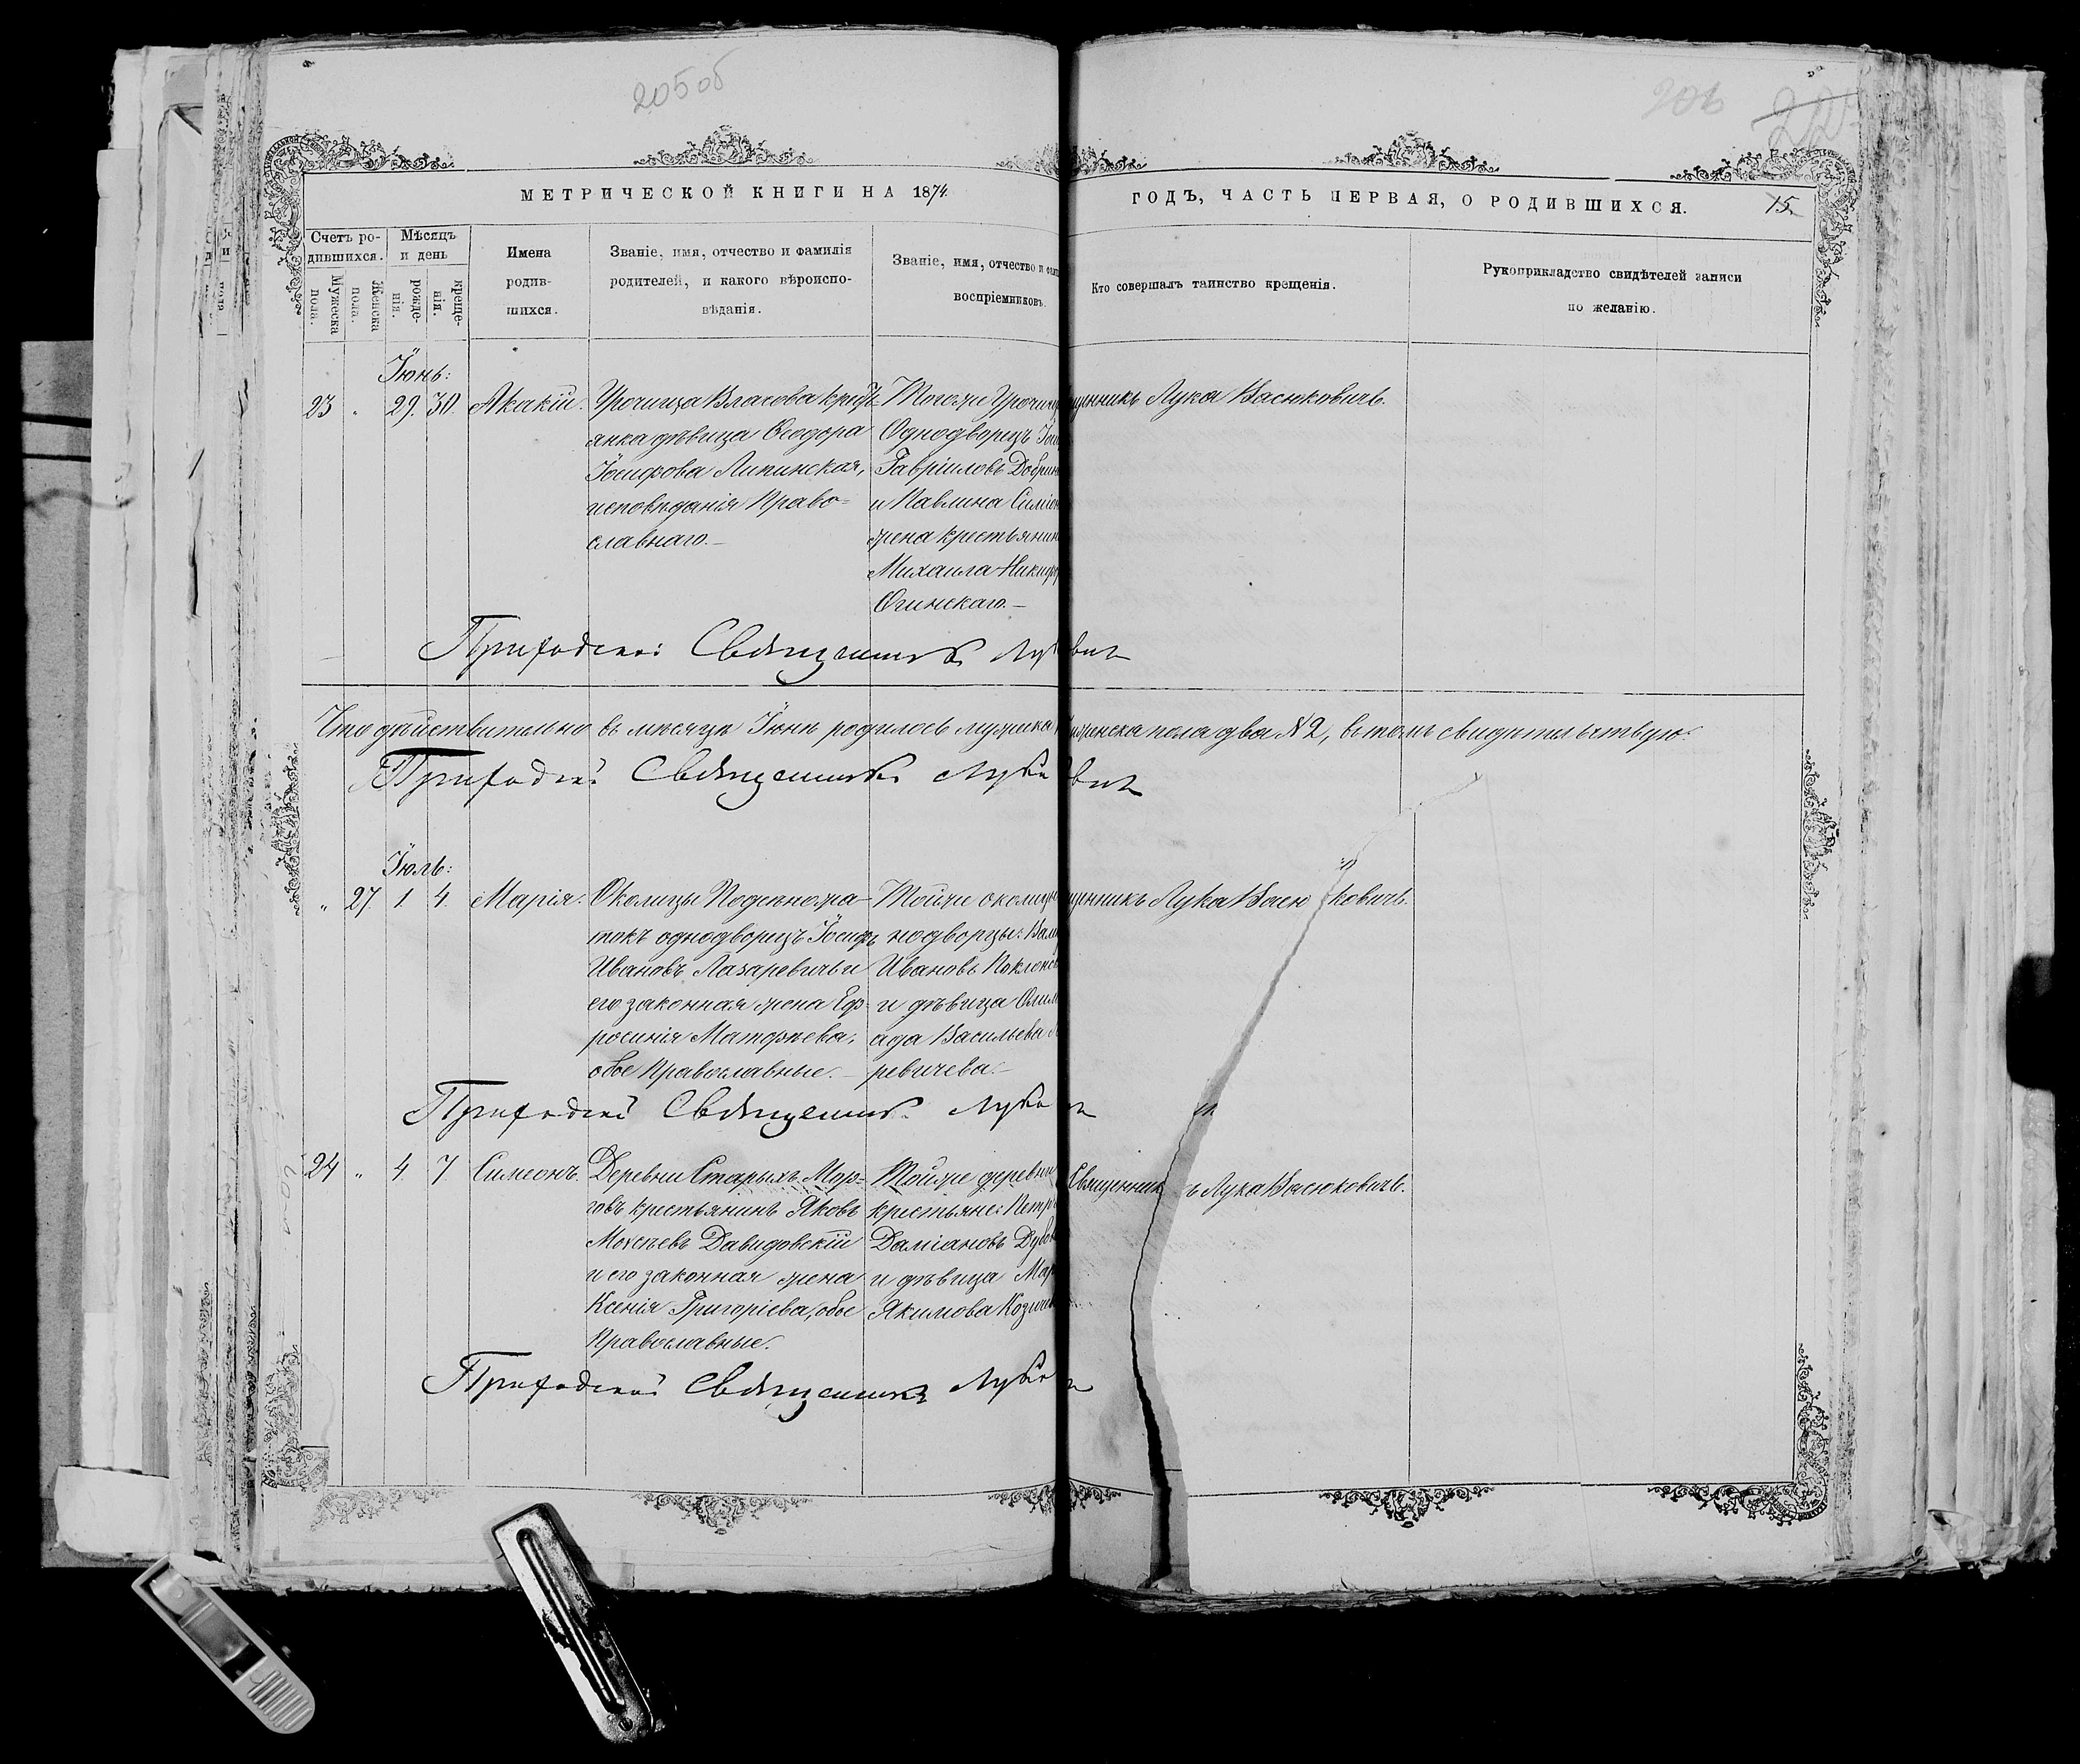 205об
206
22
МЕТРИЧЕСКОЙ КНИГИ НА 1874
ГОДЪ, ЧАСТЬ ПЕРВАЯ, О РОДИВШИХСЯ.
15
Счетъ ро-
дившихся.
Мужеска
пола.
Женска
пола.
Мѣсяцъ
и день
рожде-
нія.
креще-
нія.
Имена
родив-
шихся.
Званіе, имя, отчество и фамилія
родителей, и какого вѣроиспо-
вѣданія.
Званіе, имя, отчество и
воспріемниковъ.
Кто совершалъ таинство крещенія.
Рукоприкладство свидѣтелей записи
по желанію.
Іюнь:
23 " 29. 30. Акакій.
Урочища Власова крестъ-
янка дѣвица Ѳеодора
Іосифова Липинская,
исповѣданія Право-
славнаго.
Тогоже
Однодворецъ
Гавріиловъ
и Павлина
жена
Михаила
Огинскаго.
Лука Васюковичъ.
Приходскій Священникъ
Что дѣйствительно въ мѣсяцѣ Іюнѣ родилось мужеска женска пола два №2, въ томъ свидѣтельствую:
Приходскій Священникъ Лука
Іюль:
" 27. 1. 4. Марія.
Околицы
токъ однодворецъ Іосифъ
Ивановъ Лазаревичъ и
его законная жена Еф-
росинія Матѳѣева,
обое Православные.
Тойже
нодворцы:
Ивановъ
и дѣвица
ада Васильева
ревичева.
Лука Васюковичъ.
Приходскій Священникъ Лука
24 " 4. 7 Симеонъ.
Деревни Старыхъ Мор-
говъ крестьянинъ Яковъ
Моѵсеевъ Давидовскій
и его законная жена
Ксенія Григоріева, обое
Православные.
Тойже деревни
крестьяне: Петръ
Даміановъ
и дѣвица
Якимова
Священникъ Лука Васюковичъ.
Приходскій Священникъ Лука